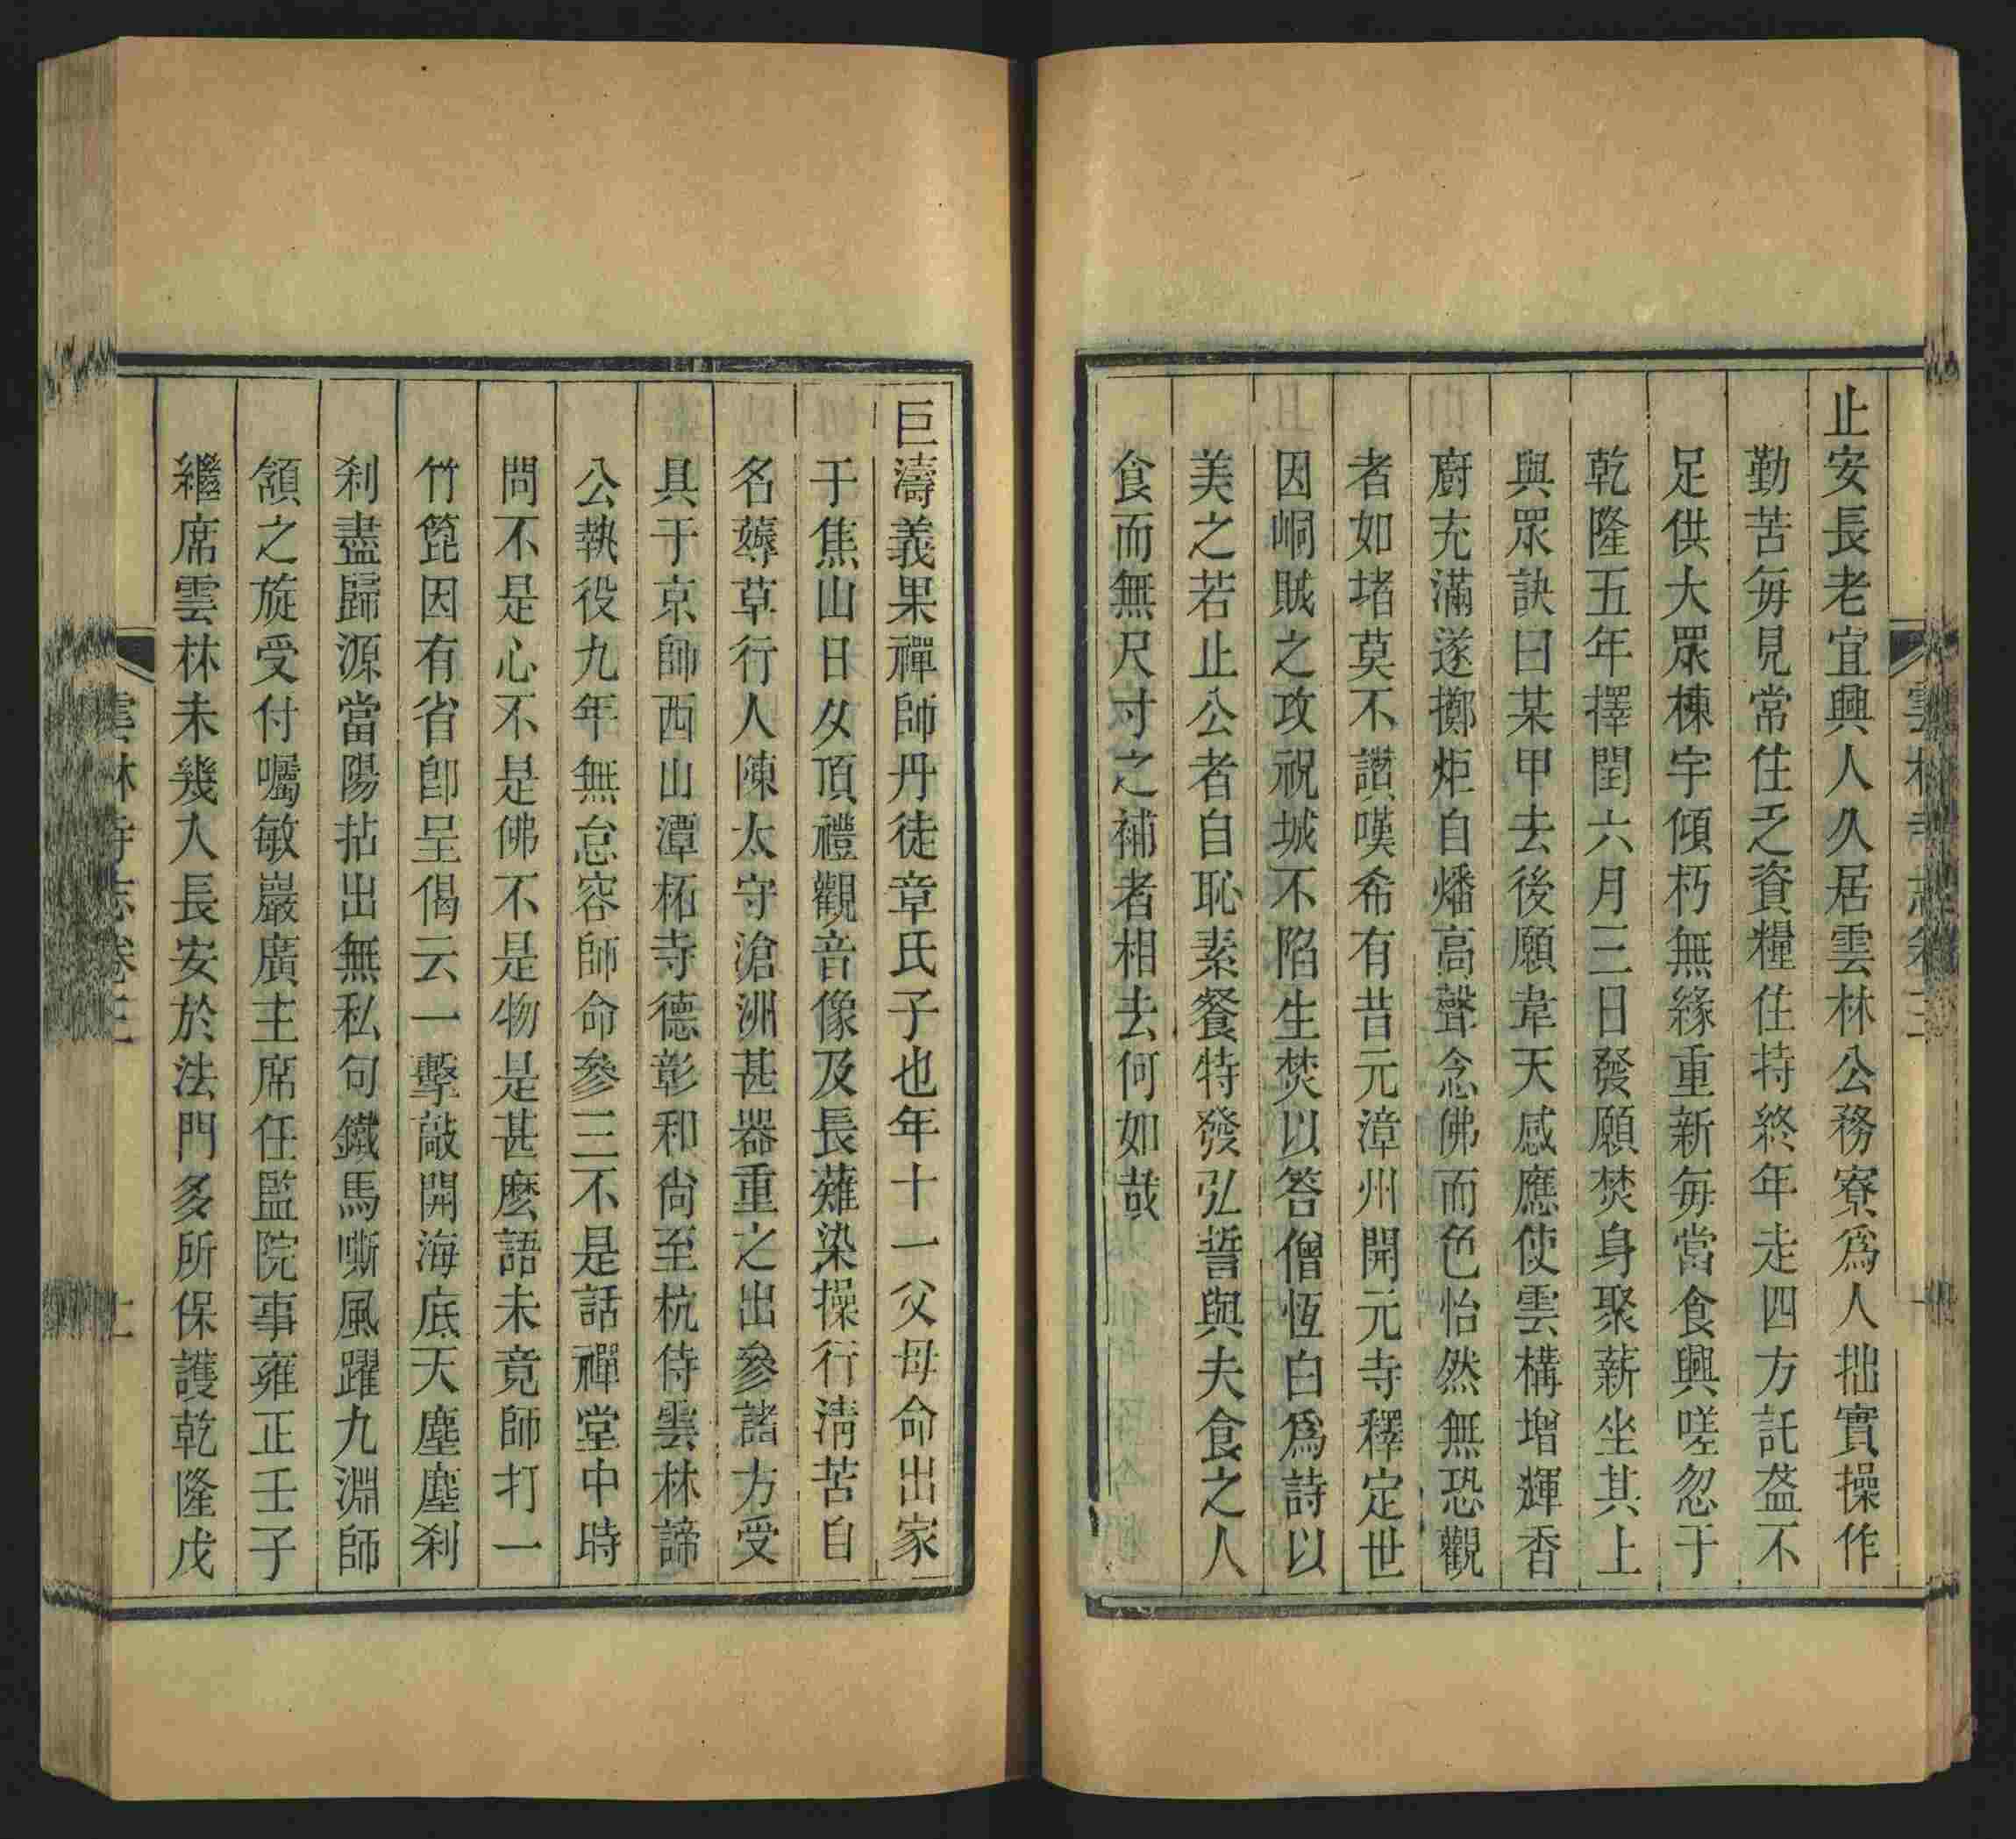 止安長老宜興人久居雲林公務寮爲人拙實操作
勤苦毎見常住乏資糧住持終年走四方託盋不
足供大眾棟宇傾朽無緣重新毎當食興嗟忽于
乾隆五年擇閏六月三日發願焚身聚薪坐其上
與眾訣曰某甲去後願韋天感應使雲構增輝香
廚充滿遂擲炬自燔高聲念佛而色怡然無恐觀
者如堵莫不讚嘆希有昔元漳州開元寺釋定世
因峒賊之攻祝城不陷生焚以答僧恆白爲詩以
美之若止公者自恥素餐特發弘誓與夫食之人
食而無尺寸之補者相去何如哉
巨濤義果禪師丹徒章氏子也年十一父母命出家
于焦山日夕頂禮觀音像及長薙染操行淸苦自
名薅草行人陳太守滄洲甚器重之出參諸方受
具于京師西山潭柘寺德彰和尙至杭侍雲林諦
公執役九年無怠容師命參三不是話禪堂中時
問不是心不是佛不是物是甚麽語未竟師打一
竹箆因有省卽呈偈云一擊敲開海底天塵塵刹
刹盡歸源當陽拈出無私句鐵馬嘶風躍九淵師
頷之旋受付囑敏巖廣主席任監院事雍正壬子
繼席雲林未幾入長安於法門多所保護乾隆戊
雲林寺志卷三